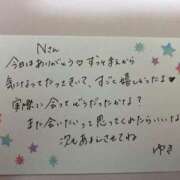 Nさん
今日はありがとう♡ずっとまえから
気になってたってきいて、すごく嬉しかったよ♥
実際に会ってどうだったかな？
また会いたいって思ってくれたらいいな
次もあそんでさせてね
ゆき